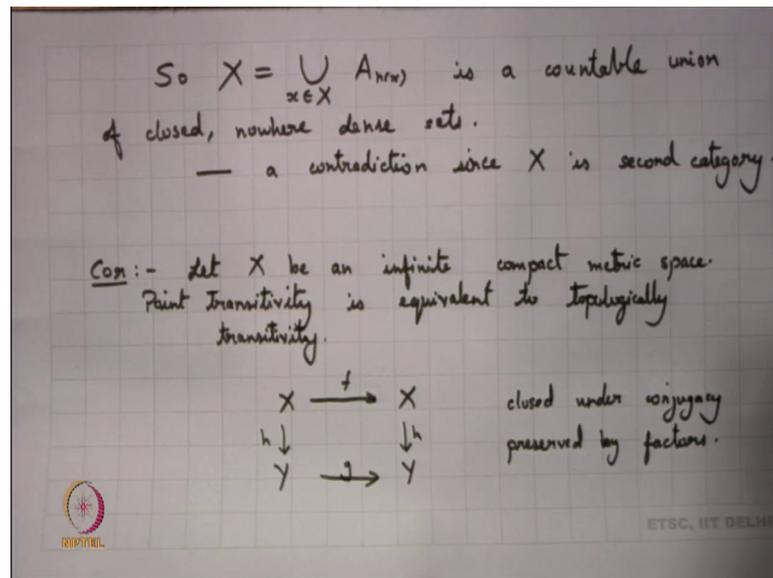 So X = ∪ A_{n(x)} is a countable union
x∈X
of closed, nowhere dense sets.
— a contradiction since X is second category.
Cor:- Let X be an infinite compact metric space.
Point Transitivity is equivalent to topologically
transitivity.
X —f→ X closed under conjugacy
h↓ ↓h preserved by factors.
Y —g→ Y
NPTEL
ETSC, IIT DELHI